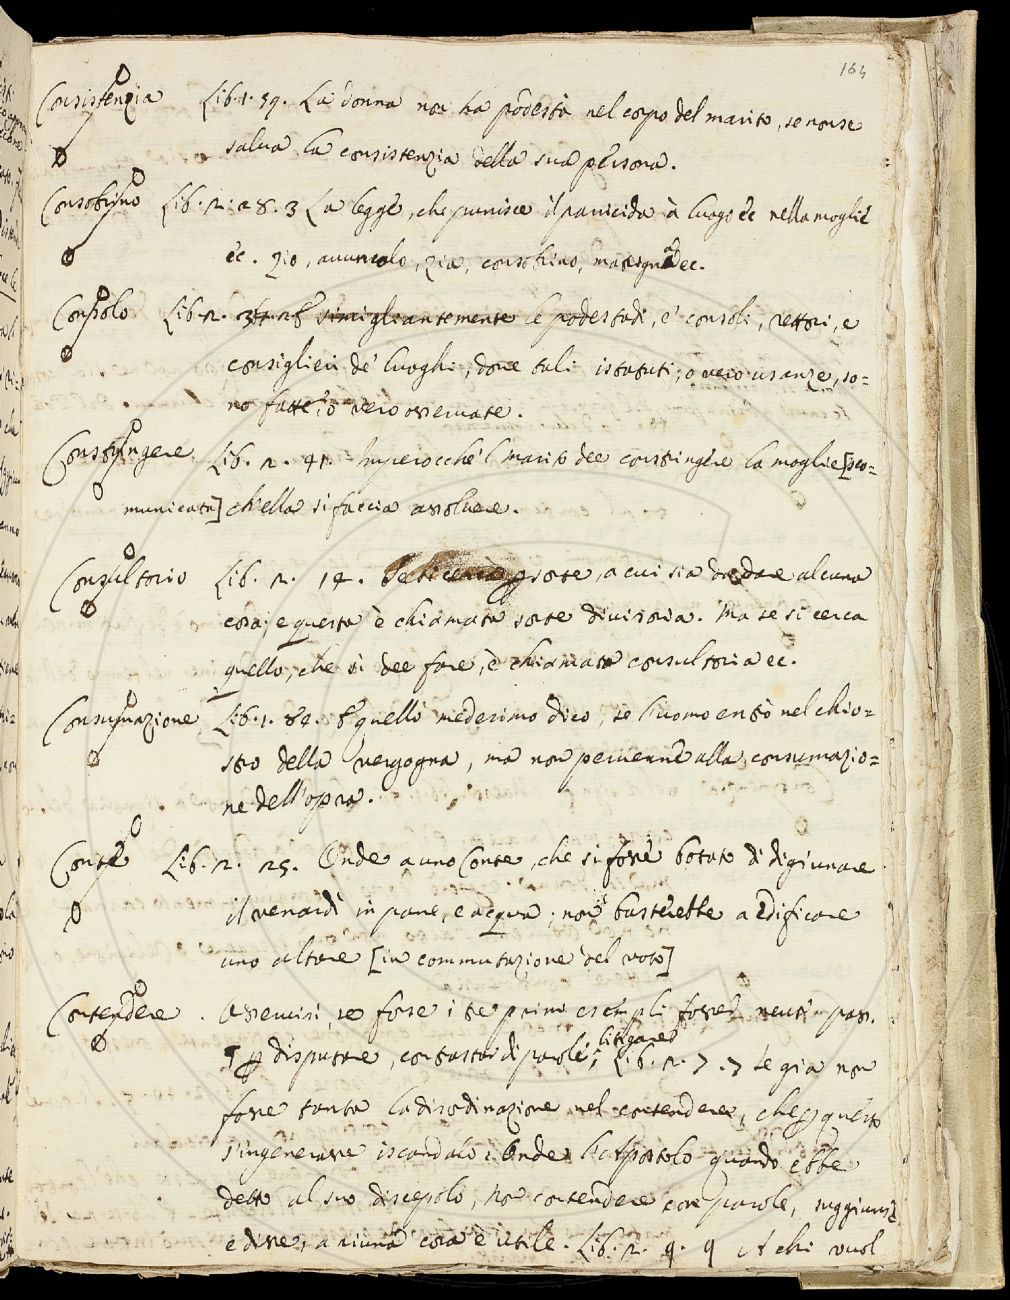 164
Consistenzia Lib. 1. 59. La donna non ha podestà nel corpo del marito, se non se
salva la consistenzia della sua persona.
Consobrino Lib. 2. 28. 3 La legge, che punisce il paricida à luogo ec nella moglie
ec. Zio, avuncolo, zia, consobrino, matrigna ec.
Consolo Lib. 2. simigliantemente le podestadi, e' consoli, rettori, e
consiglieri de' luoghi, dove tali istatuti, o vero usanze, so=
no fatte, o vero osservate.
Constringere Lib. 2. 41. Imperocchè 'l marito dee constingere la moglie [sco=
municata] ch'ella si faccia assolvere.
Consultorio Lib. 2. 14. sorte, a cui sia da dare alcuna
cosa; e questa è chiamata sorte divisoria. Ma se si cerca
quello, che si dee fare, è chiamata consultoria ec.
Consumazione Lib. 1. 84. E quelli medesimo dico, se l'uomo entrò nel chio=
stro della vergogna, ma non pervenne alla consumazio=
ne dell'opra.
Conte Lib. 2. 25. Onde a uno Conte, che si fosse botato di digiunare
il venardì in pane, e acqua; non basterebbe a edificare
uno altare [in commutazione del voto]
Contendere. Osservisi, se forse i tre primi esempli fosser neut. pass.
¶ disputare, contastar di parole, litigare Lib. 2. 7. 7 Se già non
fosse tanta la disordinazione nel contendere, che questo
s'ingenerasse iscandalo: Onde l'Apostolo quando ebbe
detto al suo discepolo, Non contendere con parole, suggiunse
e disse, a niuna cosa è utile. Lib. 2. 9. 9 A chi vuol